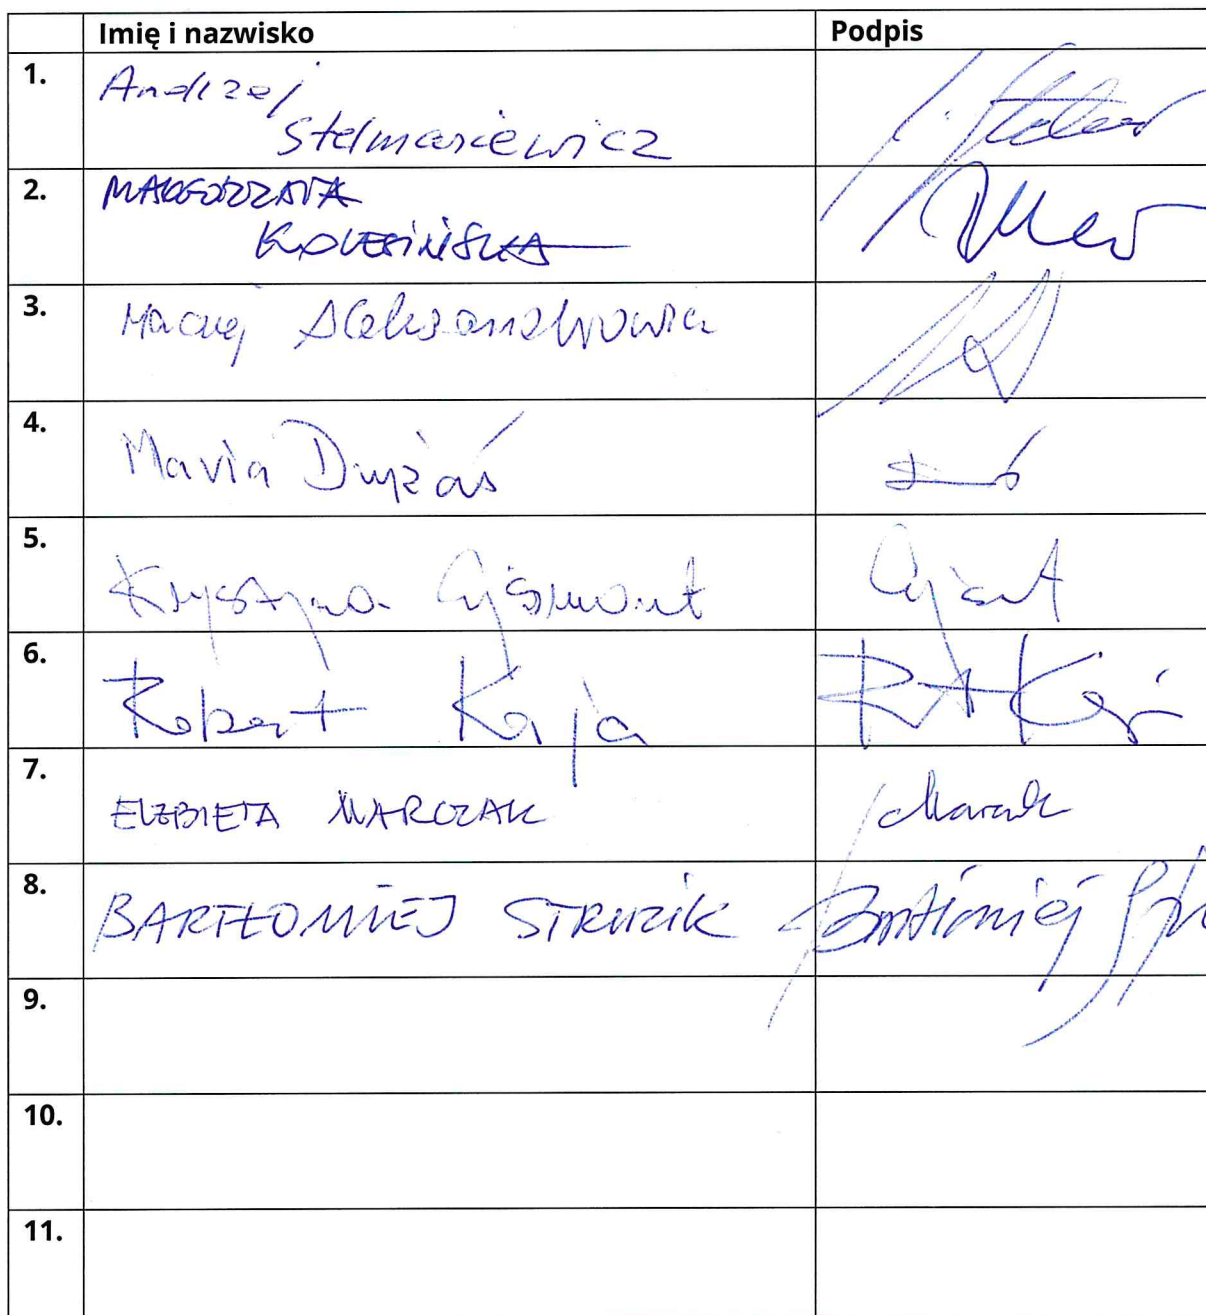 Imię i nazwisko Podpis
1. Andrzej
Stelmasiewicz
2. MAŁGORZATA
KOLESIŃSKA
3. Maciej Aleksandrowicz
4. Maria Dużaś
5. Krystyna
6. Robert Kaja
7. ELŻBIETA MARCZAK
8. BARTŁOMIEJ STRUZIK Bartłomiej
9.
10.
11.